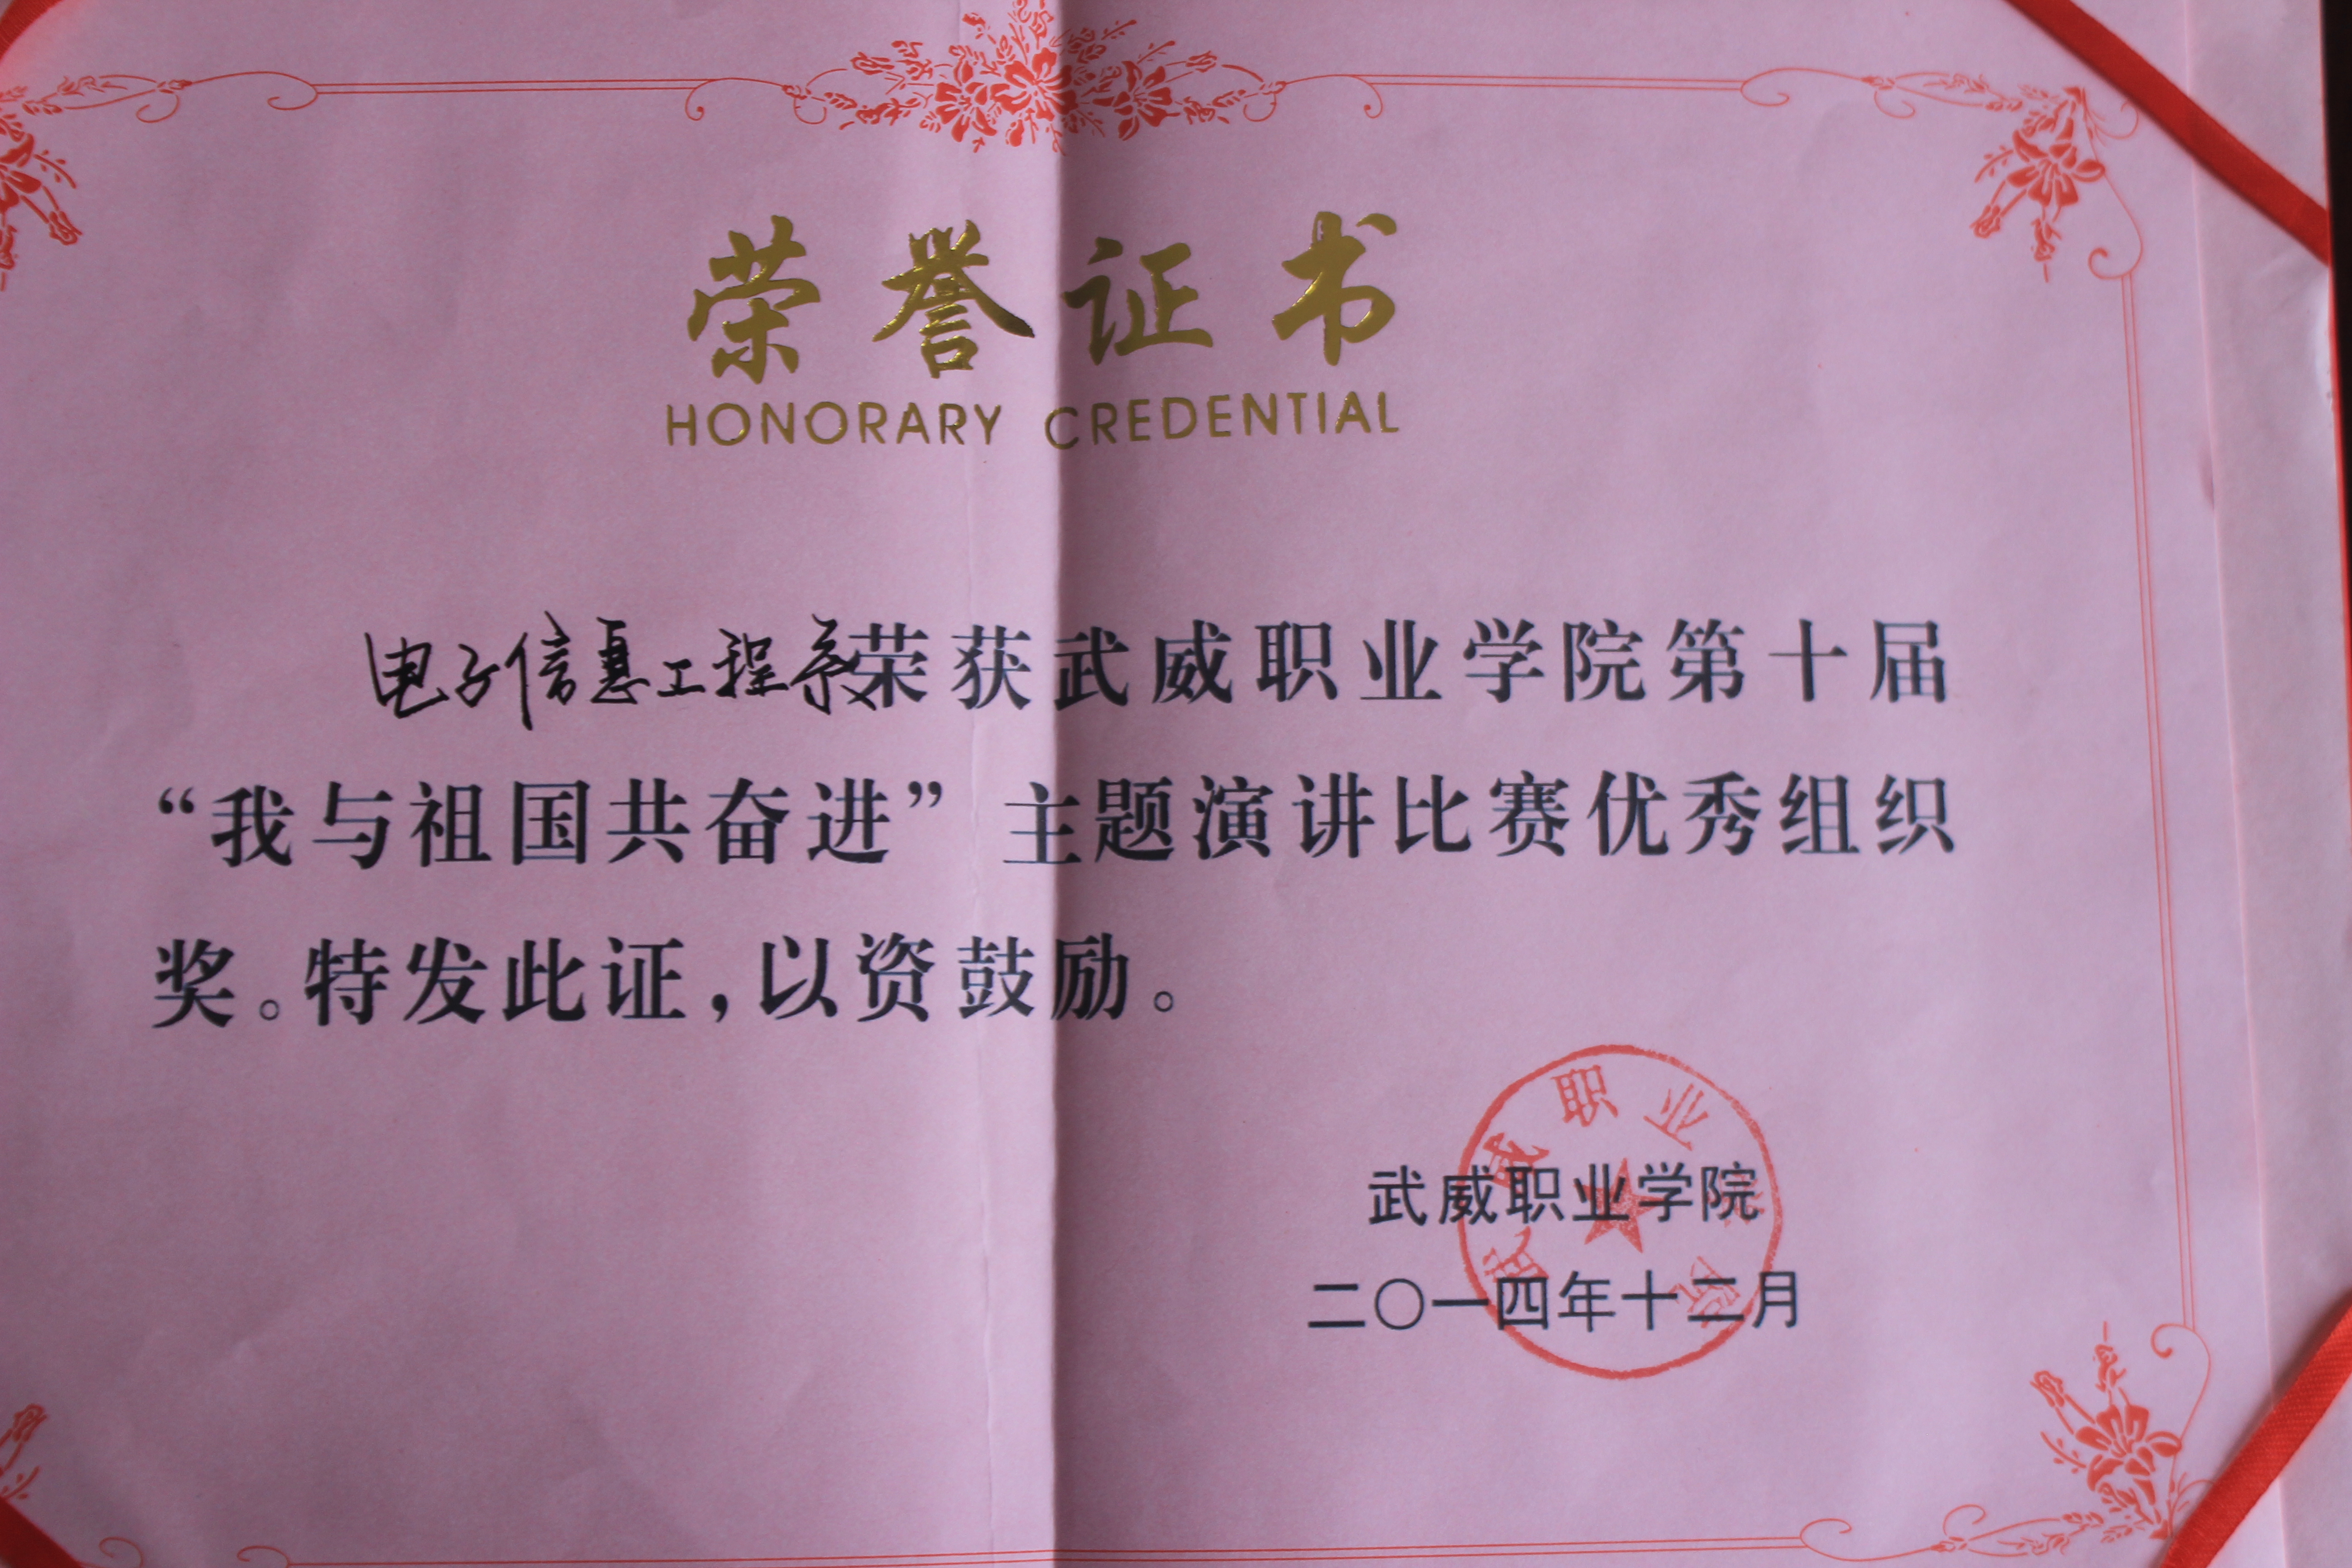 荣誉证书
HONORARY CREDENTIAL
电子信息工程系荣获武威职业学院第十届
“我与祖国共奋进”主题演讲比赛优秀组织
奖。特发此证，以资鼓励。
武威职业学院
武威职业学院
二〇一四年十二月